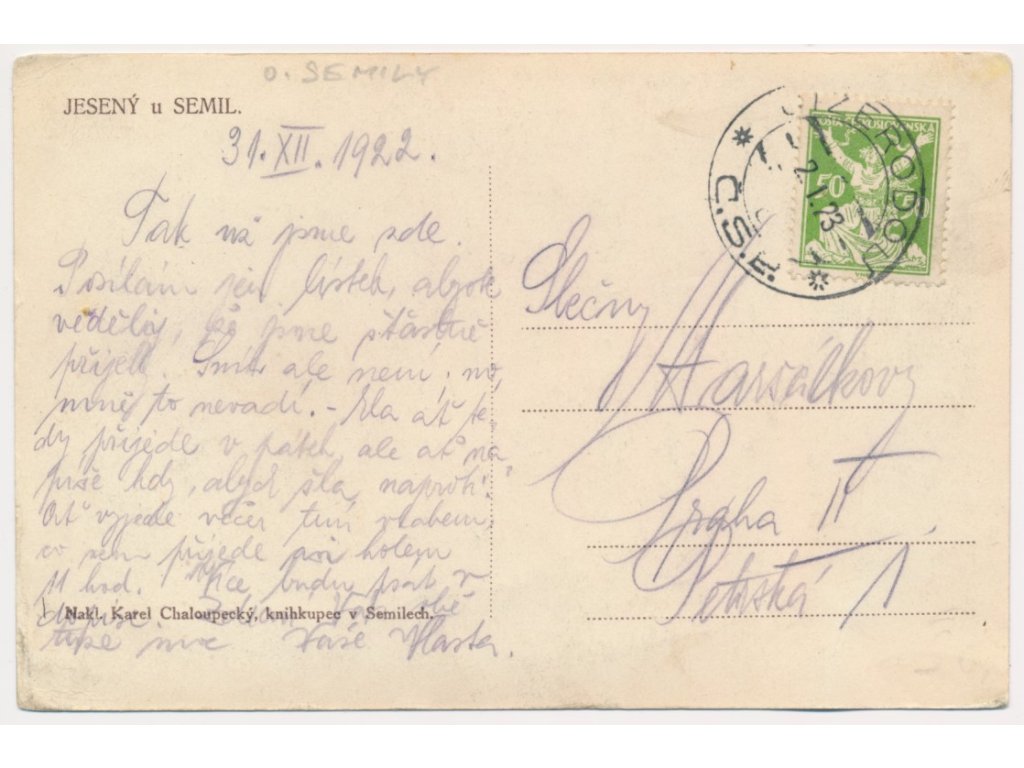 O. SEMILY
JESENÝ u SEMIL.
31. XII. 1922.
Tak už jsme zde.
Posílám jen lístek, abyste
věděly, že jsme šťastně
přijely. Sníh ale není, no,
mně to nevadí. - Ela ať te-
dy přijede v pátek, ale ať na-
píše kdy, abych šla naproti.
Ať vyjede večer tím vlakem,
co sem přijede asi kolem
11 hod. Více budu psát v
dopise.
Nakl. Karel Chaloupecký, knihkupec v Semilech.
Vaše Vlasta.
POŠTA ČESKOSLOVENSKÁ
50
2.I.23
Č.S.P.
Slečny
Maršálkovy
Praha II
Petrská 1